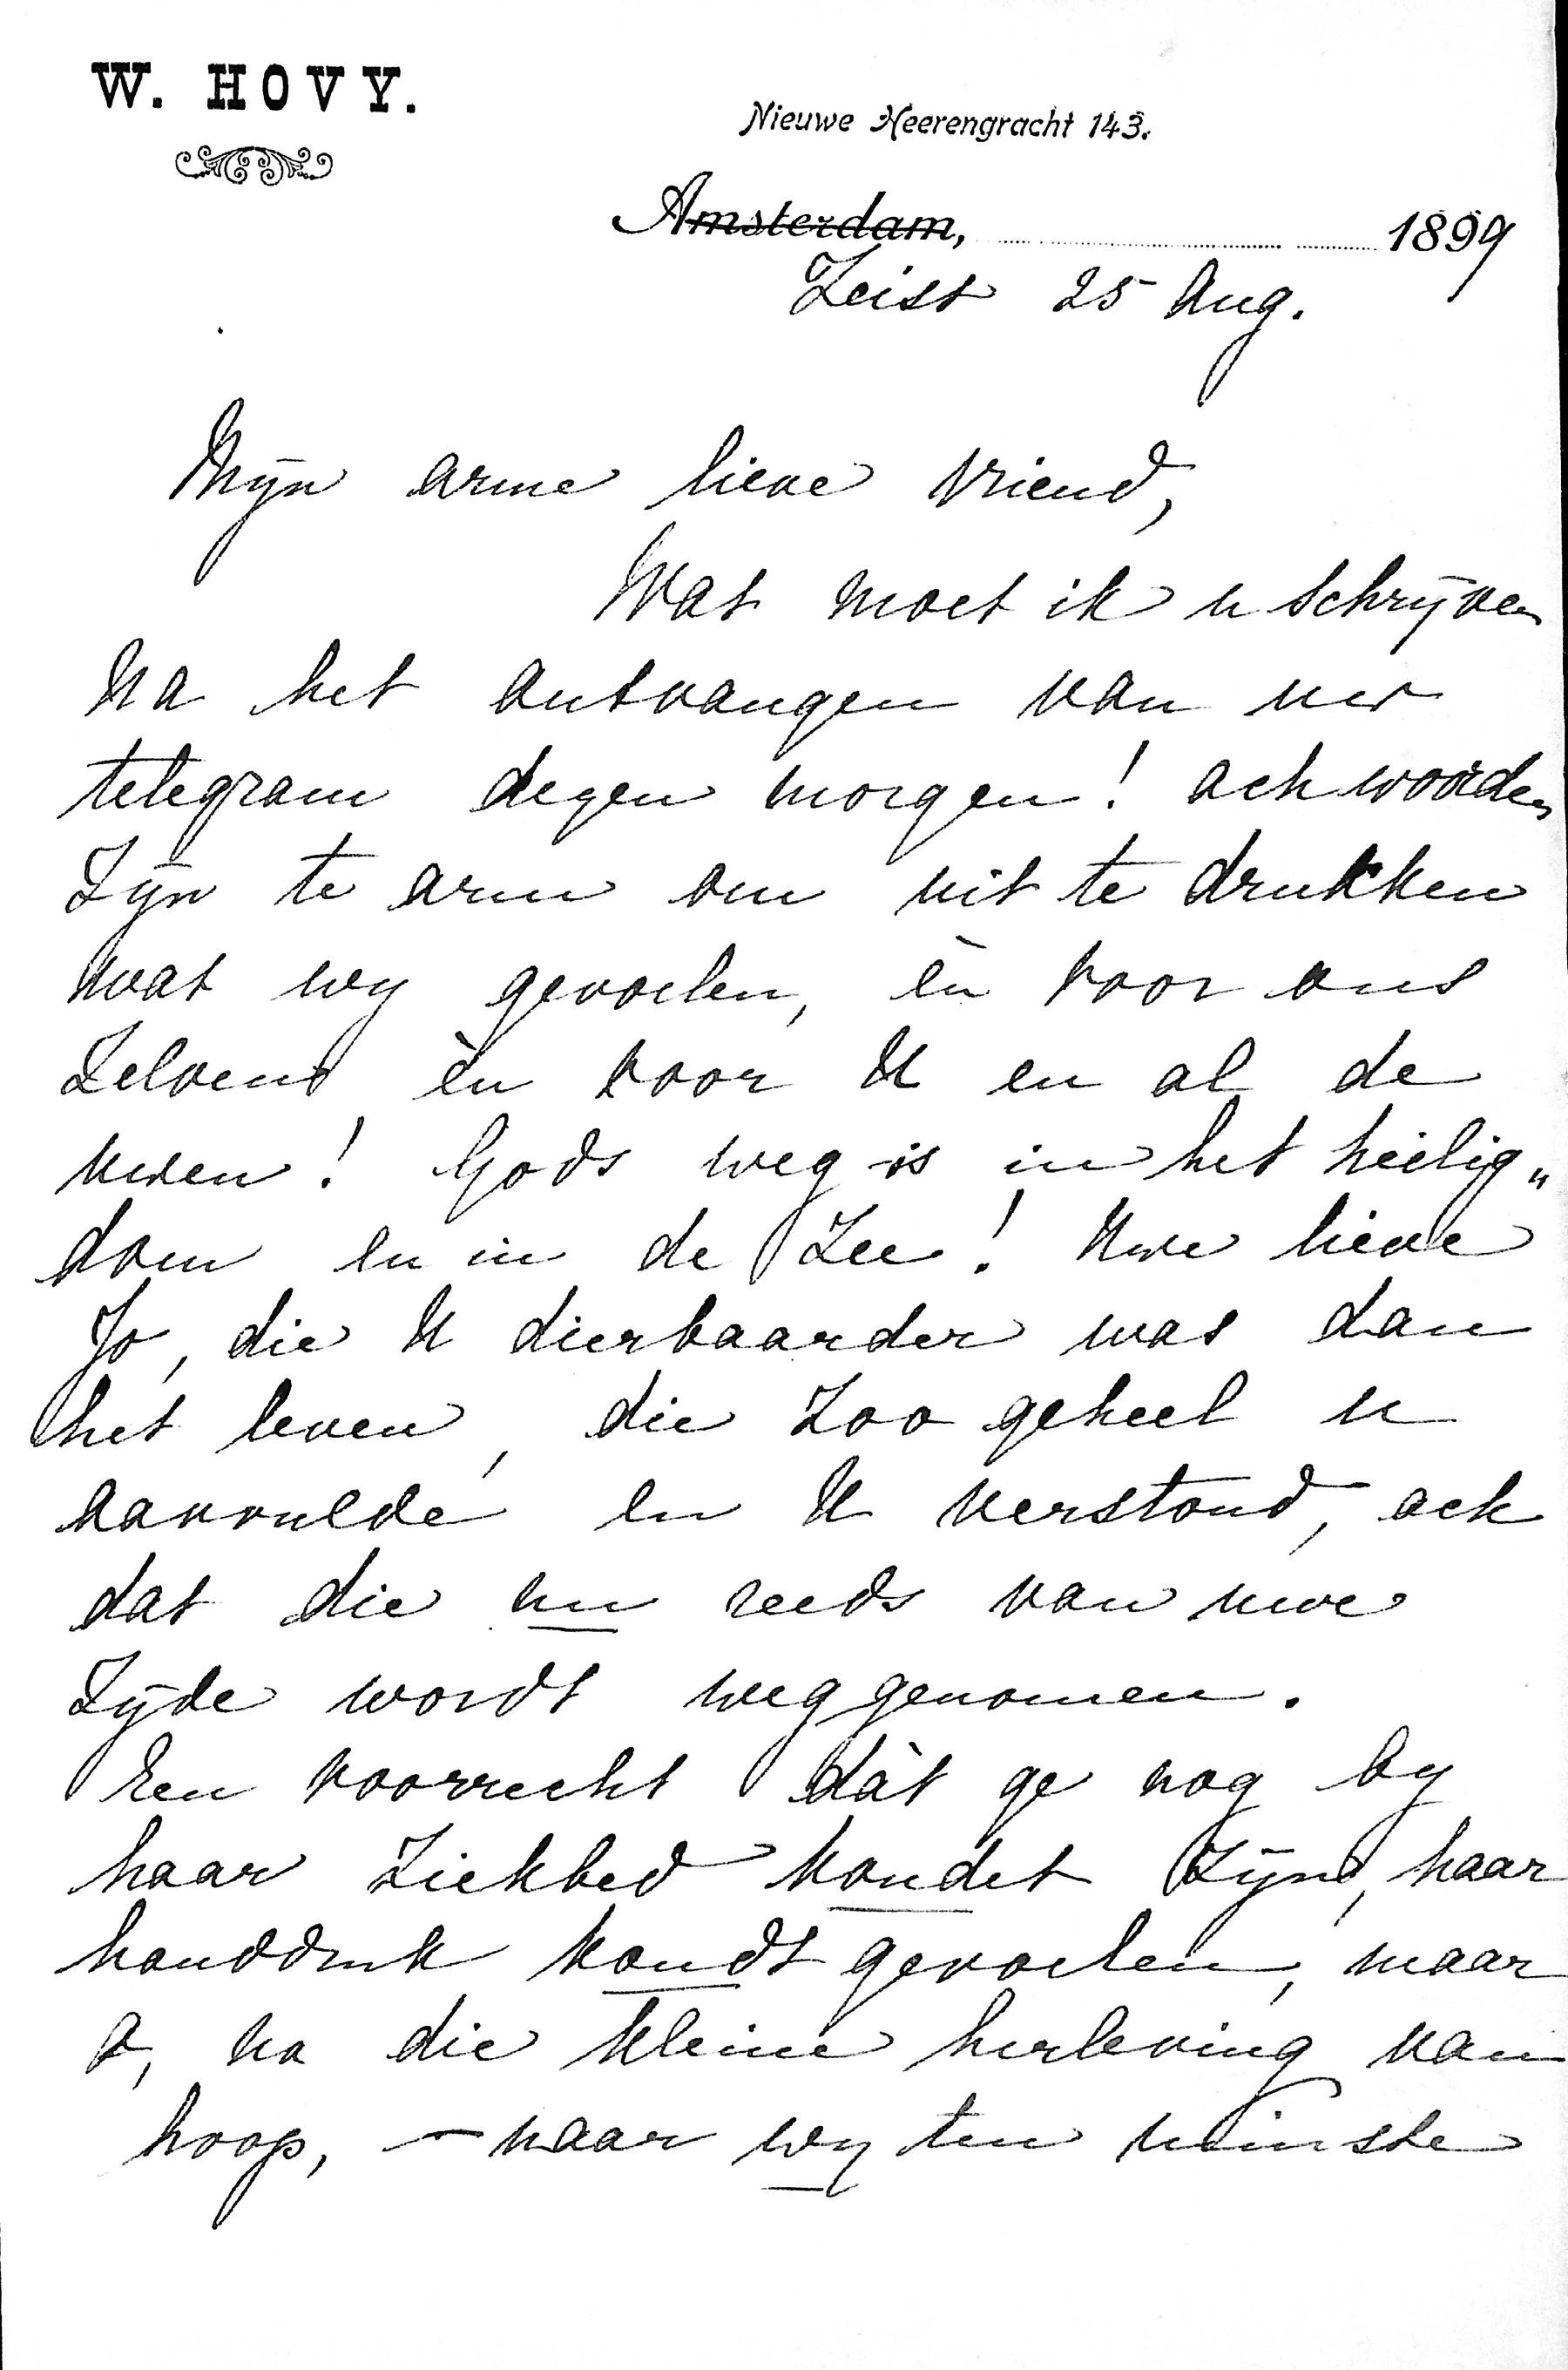 W. HOVY.
Nieuwe Heerengracht 143.
Amsterdam, 1899
Zeist 25 Aug.
Mijn arme lieve vriend,
Wat moet ik u schrijven
na het ontvangen van uw
telegram dezen morgen! ach woorden
zijn te arm om uit te drukken
wat wy gevoelen, èn voor ons
zelven èn voor U en al de
uwen! Gods weg is in het heilig„
dom en in de Zee! Uwe lieve
Jo, die U dierbaarder was dan
het leven, die zoo geheel u
aanvulde en U verstond, ach
dat die nu reeds van uwe
zijde wordt weggenomen.
Een voorrecht dàt ge nog by
haar ziekbed kondet zijn, haar
handdruk kondt gevoelen, maar
o, na die kleine herleving van
hoop, — naar wy ten minste